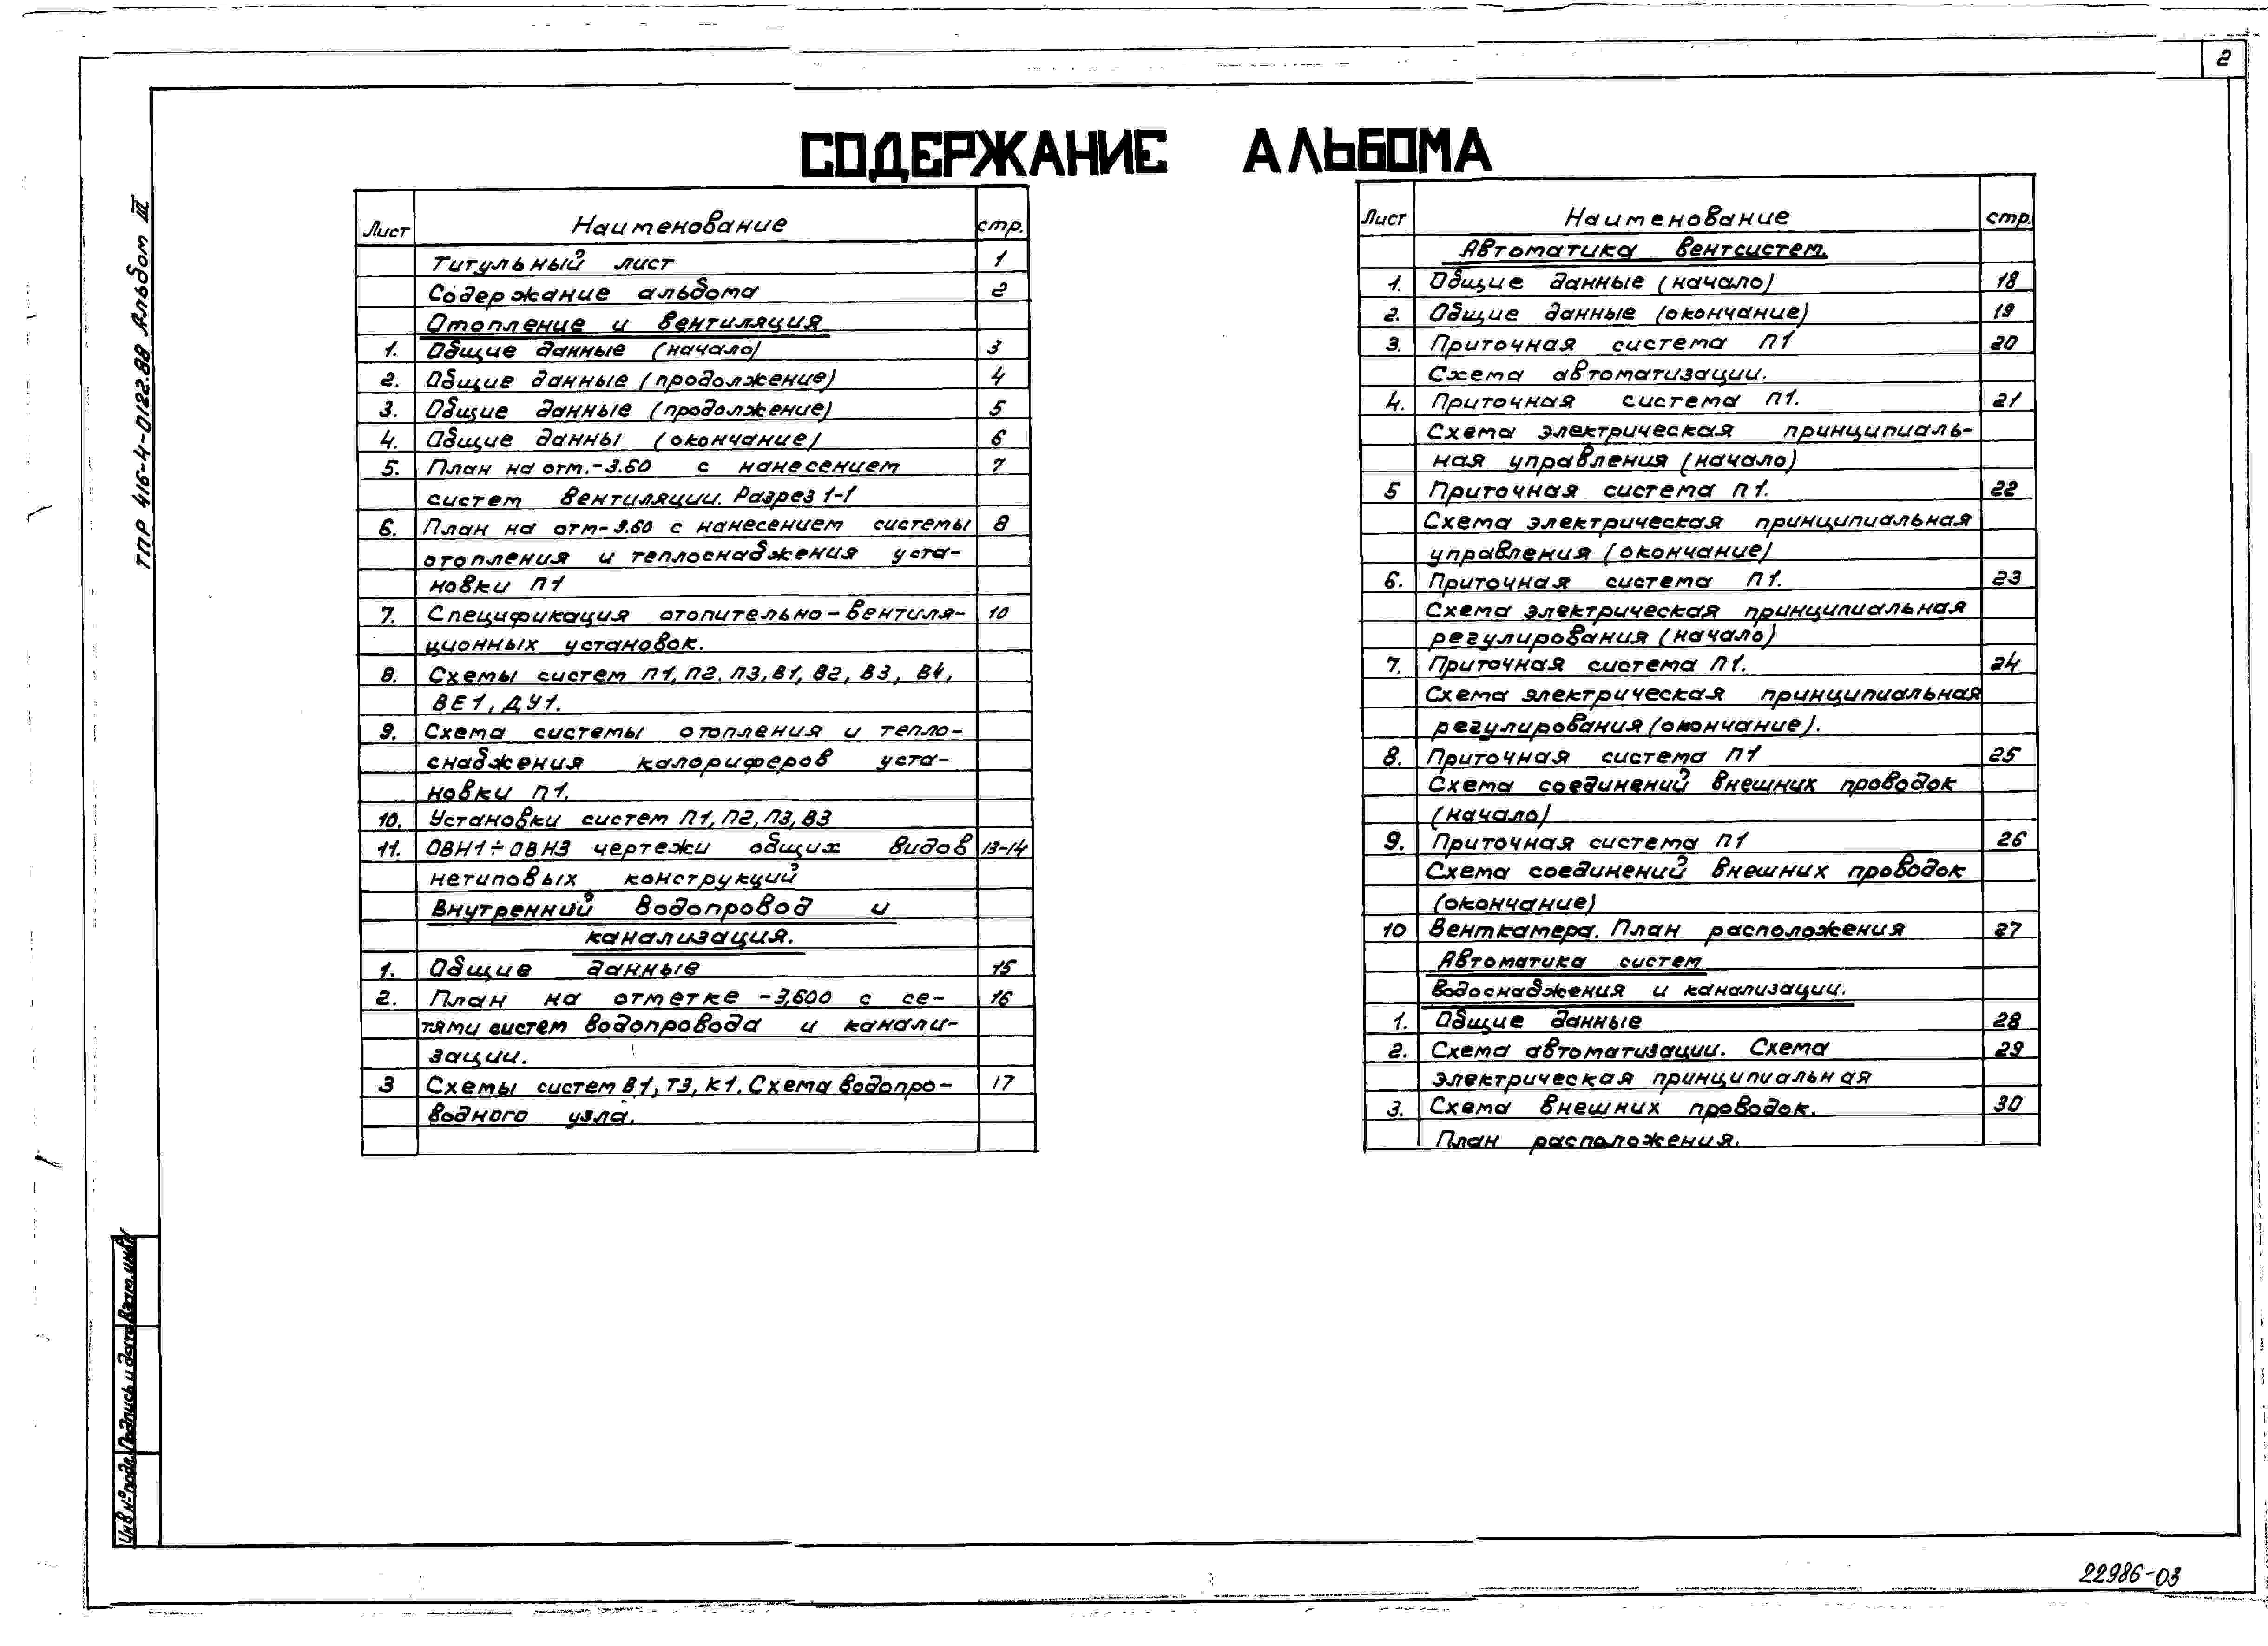 2
СОДЕРЖАНИЕ АЛЬБОМА
ТПР 416-4-0122.88 Альбом III
Лист Наименование стр.
Титульный лист 1
Содержание альбома 2
Отопление и вентиляция
1. Общие данные (начало) 3
2. Общие данные (продолжение) 4
3. Общие данные (продолжение) 5
4. Общие данны (окончание) 6
5. План на отм.-3.60 с нанесением 7
систем вентиляции. Разрез 1-1
6. План на отм-3.60 с нанесением системы 8
отопления и теплоснабжения уста-
новки П1
7. Спецификация отопительно-вентиля- 10
ционных установок.
8. Схемы систем П1, П2, П3, В1, В2, В3, В4,
ВЕ1, ДУ1.
9. Схема системы отопления и тепло-
снабжения калориферов уста-
новки П1.
10. Установки систем П1, П2, П3, В3
11. ОВН1÷ОВН3 чертежи общих видов 13-14
нетиповых конструкций
Внутренний водопровод и
канализация.
1. Общие данные 15
2. План на отметке -3,600 с се- 16
тями систем водопровода и канали-
зации.
3 Схемы систем В1, Т3, К1. Схема водопро- 17
водного узла.
Лист Наименование стр.
Автоматика вентсистем.
1. Общие данные (начало) 18
2. Общие данные (окончание) 19
3. Приточная система П1 20
Схема автоматизации.
4. Приточная система П1. 21
Схема электрическая принципиаль-
ная управления (начало)
5 Приточная система П1. 22
Схема электрическая принципиальная
управления (окончание)
6. Приточная система П1. 23
Схема электрическая принципиальная
регулирования (начало)
7. Приточная система П1. 24
Схема электрическая принципиальная
регулирования (окончание).
8. Приточная система П1 25
Схема соединений внешних проводок
(начало)
9. Приточная система П1 26
Схема соединений внешних проводок
(окончание)
10 Венткамера. План расположения 27
Автоматика систем
водоснабжения и канализации.
1. Общие данные 28
2. Схема автоматизации. Схема 29
электрическая принципиальная
3. Схема внешних проводок. 30
План расположения.
Инв № подл. Подпись и дата Взам. инв №
22986-03